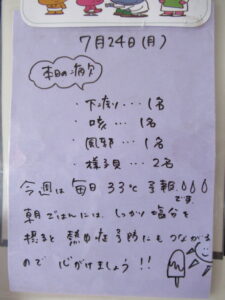 7月24日(月)
本日の病欠
・下痢り・・・1名
・咳 ・・・1名
・風邪・・・1名
・様子見・・・2名
今週は毎日33℃予報
です。
朝ごはんには、しっかり塩分を
摂ると熱中症予防にもつながる
ので心がけましょう!!